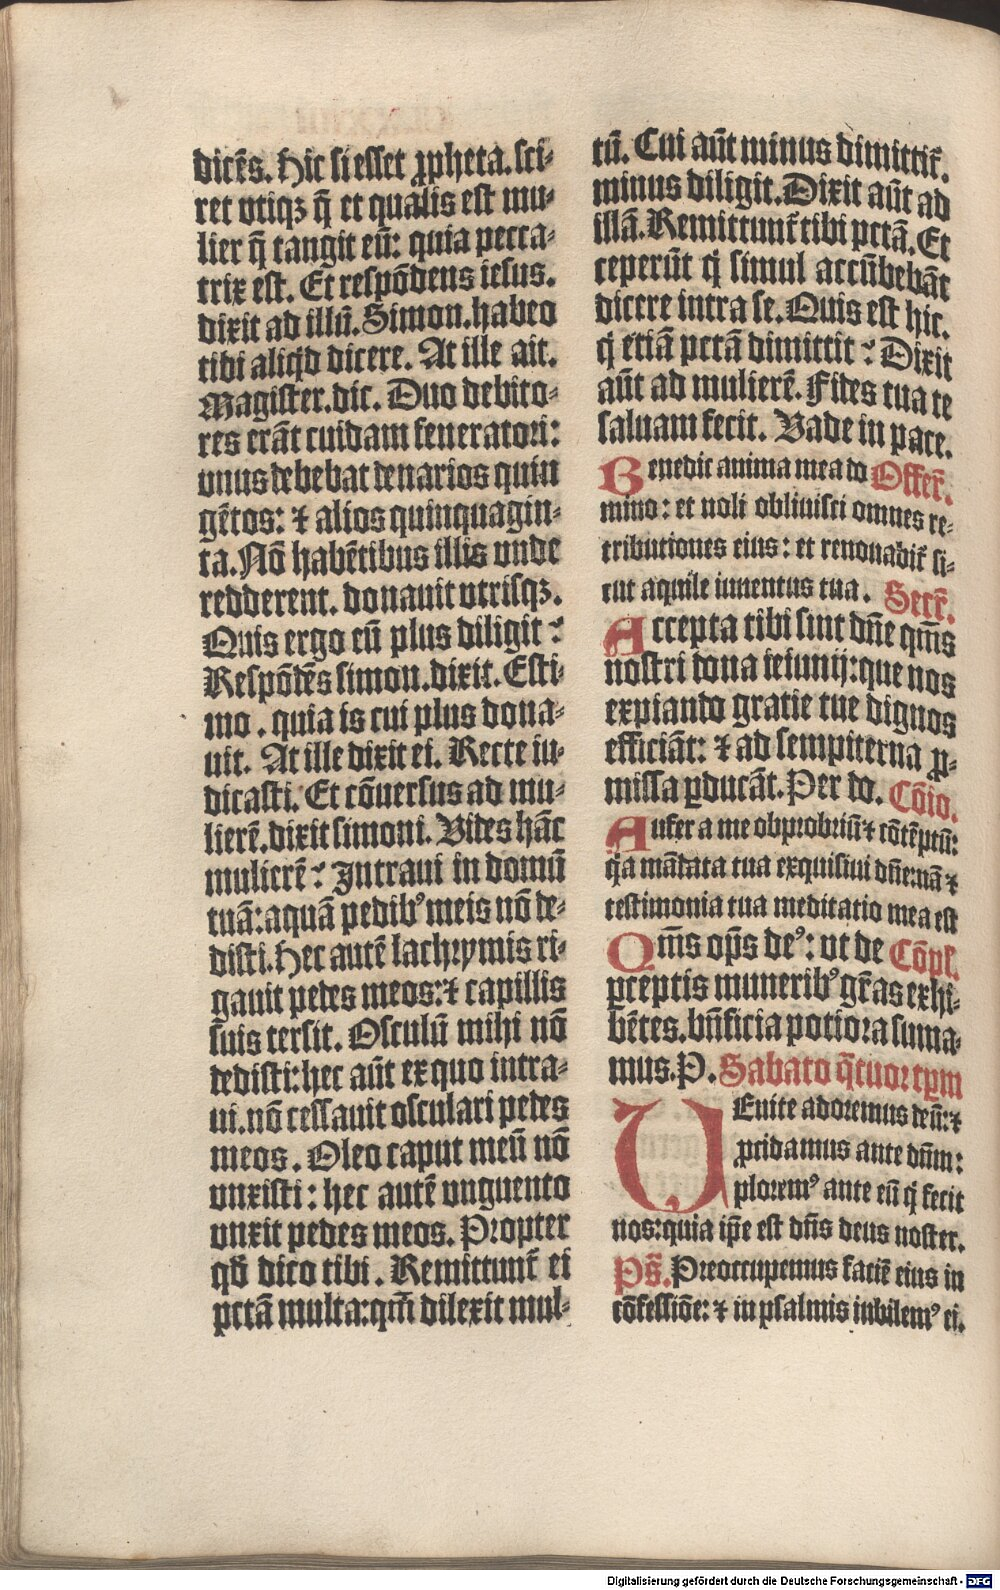 dicēs. Hic si esset ꝓpheta. sci⸗
ret vtiqꝫ q̄ et qualis est mu⸗
lier q̄ tangit eū: quia pecca⸗
trix est. Et respōdens iesus.
dixit ad illū. Simon. habeo
tibi aliqd dicere. At ille ait.
Magister. dic. Duo debito⸗
res erāt cuidam feneratori:
vnus debebat denarios quin
gētos: ⁊ alios quinquagin⸗
ta. Nō habētibus illis vnde
redderent. donauit vtrisqꝫ.
Quis ergo eū plus diligit?
Respōdēs simon. dixit. Esti⸗
mo. quia is cui plus dona⸗
uit. At ille dixit ei. Recte iu⸗
dicasti. Et cōuersus ad mu⸗
lierē. dixit simoni. Uides hāc
mulierē? Intraui in domū
tuā: aquā pedibꝰ meis nō de⸗
disti. Hec autē lachrymis ri⸗
gauit pedes meos: ⁊ capillis
suis tersit. Osculū mihi nō
dedisti: hec aūt ex quo intra⸗
ui. nō cessauit osculari pedes
meos. Oleo caput meū nō
vnxisti: hec autē vnguento
vnxit pedes meos. Propter
qd̄ dico tibi. Remittunt̄ ei
pctā multa: qm̄ dilexit mul⸗
tū. Cui aūt minus dimittit̄.
minus diligit. Dixit aūt ad
illā. Remittunt̄ tibi pctā. Et
ceperūt q̇ simul accūbebāt
dicere intra se. Quis est hic.
q̇ etiā pctā dimittit? Dixit
aūt ad mulierē. Fides tua te
saluam fecit. Uade in pace.
Benedic anima mea do Offer̄.
mino: et noli obliuisci omnes re⸗
tributiones eius: et renouabit̄ si⸗
cut aquile iuuentus tua. Secr̄.
Accepta tibi sint dn̄e qm̄s
nostri dona ieiunij: que nos
expiando gratie tue dignos
efficiāt: ⁊ ad sempiterna ꝓ⸗
missa ꝑducāt. Per do. Cōio.
Aufer a me obprobriū ⁊ cōtēptū:
qa mādata tua exquisiui dn̄e: nā ⁊
testimonia tua meditatio mea est
Qm̄s op̄s deꝰ: vt de Cōpl.
ꝑceptis muneribꝰ gr̄as exhi⸗
bētes. bn̄ficia potiora suma⸗
mus. P. Sabato q̄tuor tꝑm
UEnite adoremus deū: ⁊
ꝓcidamus ante dn̄m:
ploremꝰ ante eū q̇ fecit
nos: quia ip̄e est dn̄s deus noster.
Ps̄. Preoccupemus faciē eius in
cōfessiōe: ⁊ in psalmis iubilemꝰ ei.
Digitalisierung gefördert durch die Deutsche Forschungsgemeinschaft - DFG